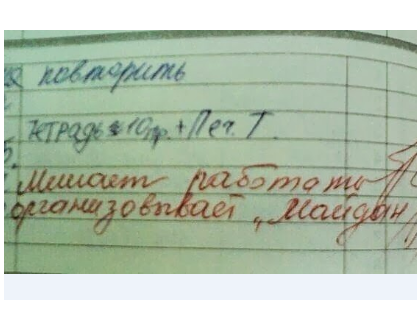 повторить
тетрадь 10 пр. + Печ. Т.
Мешает работать
организовывает „Майдан